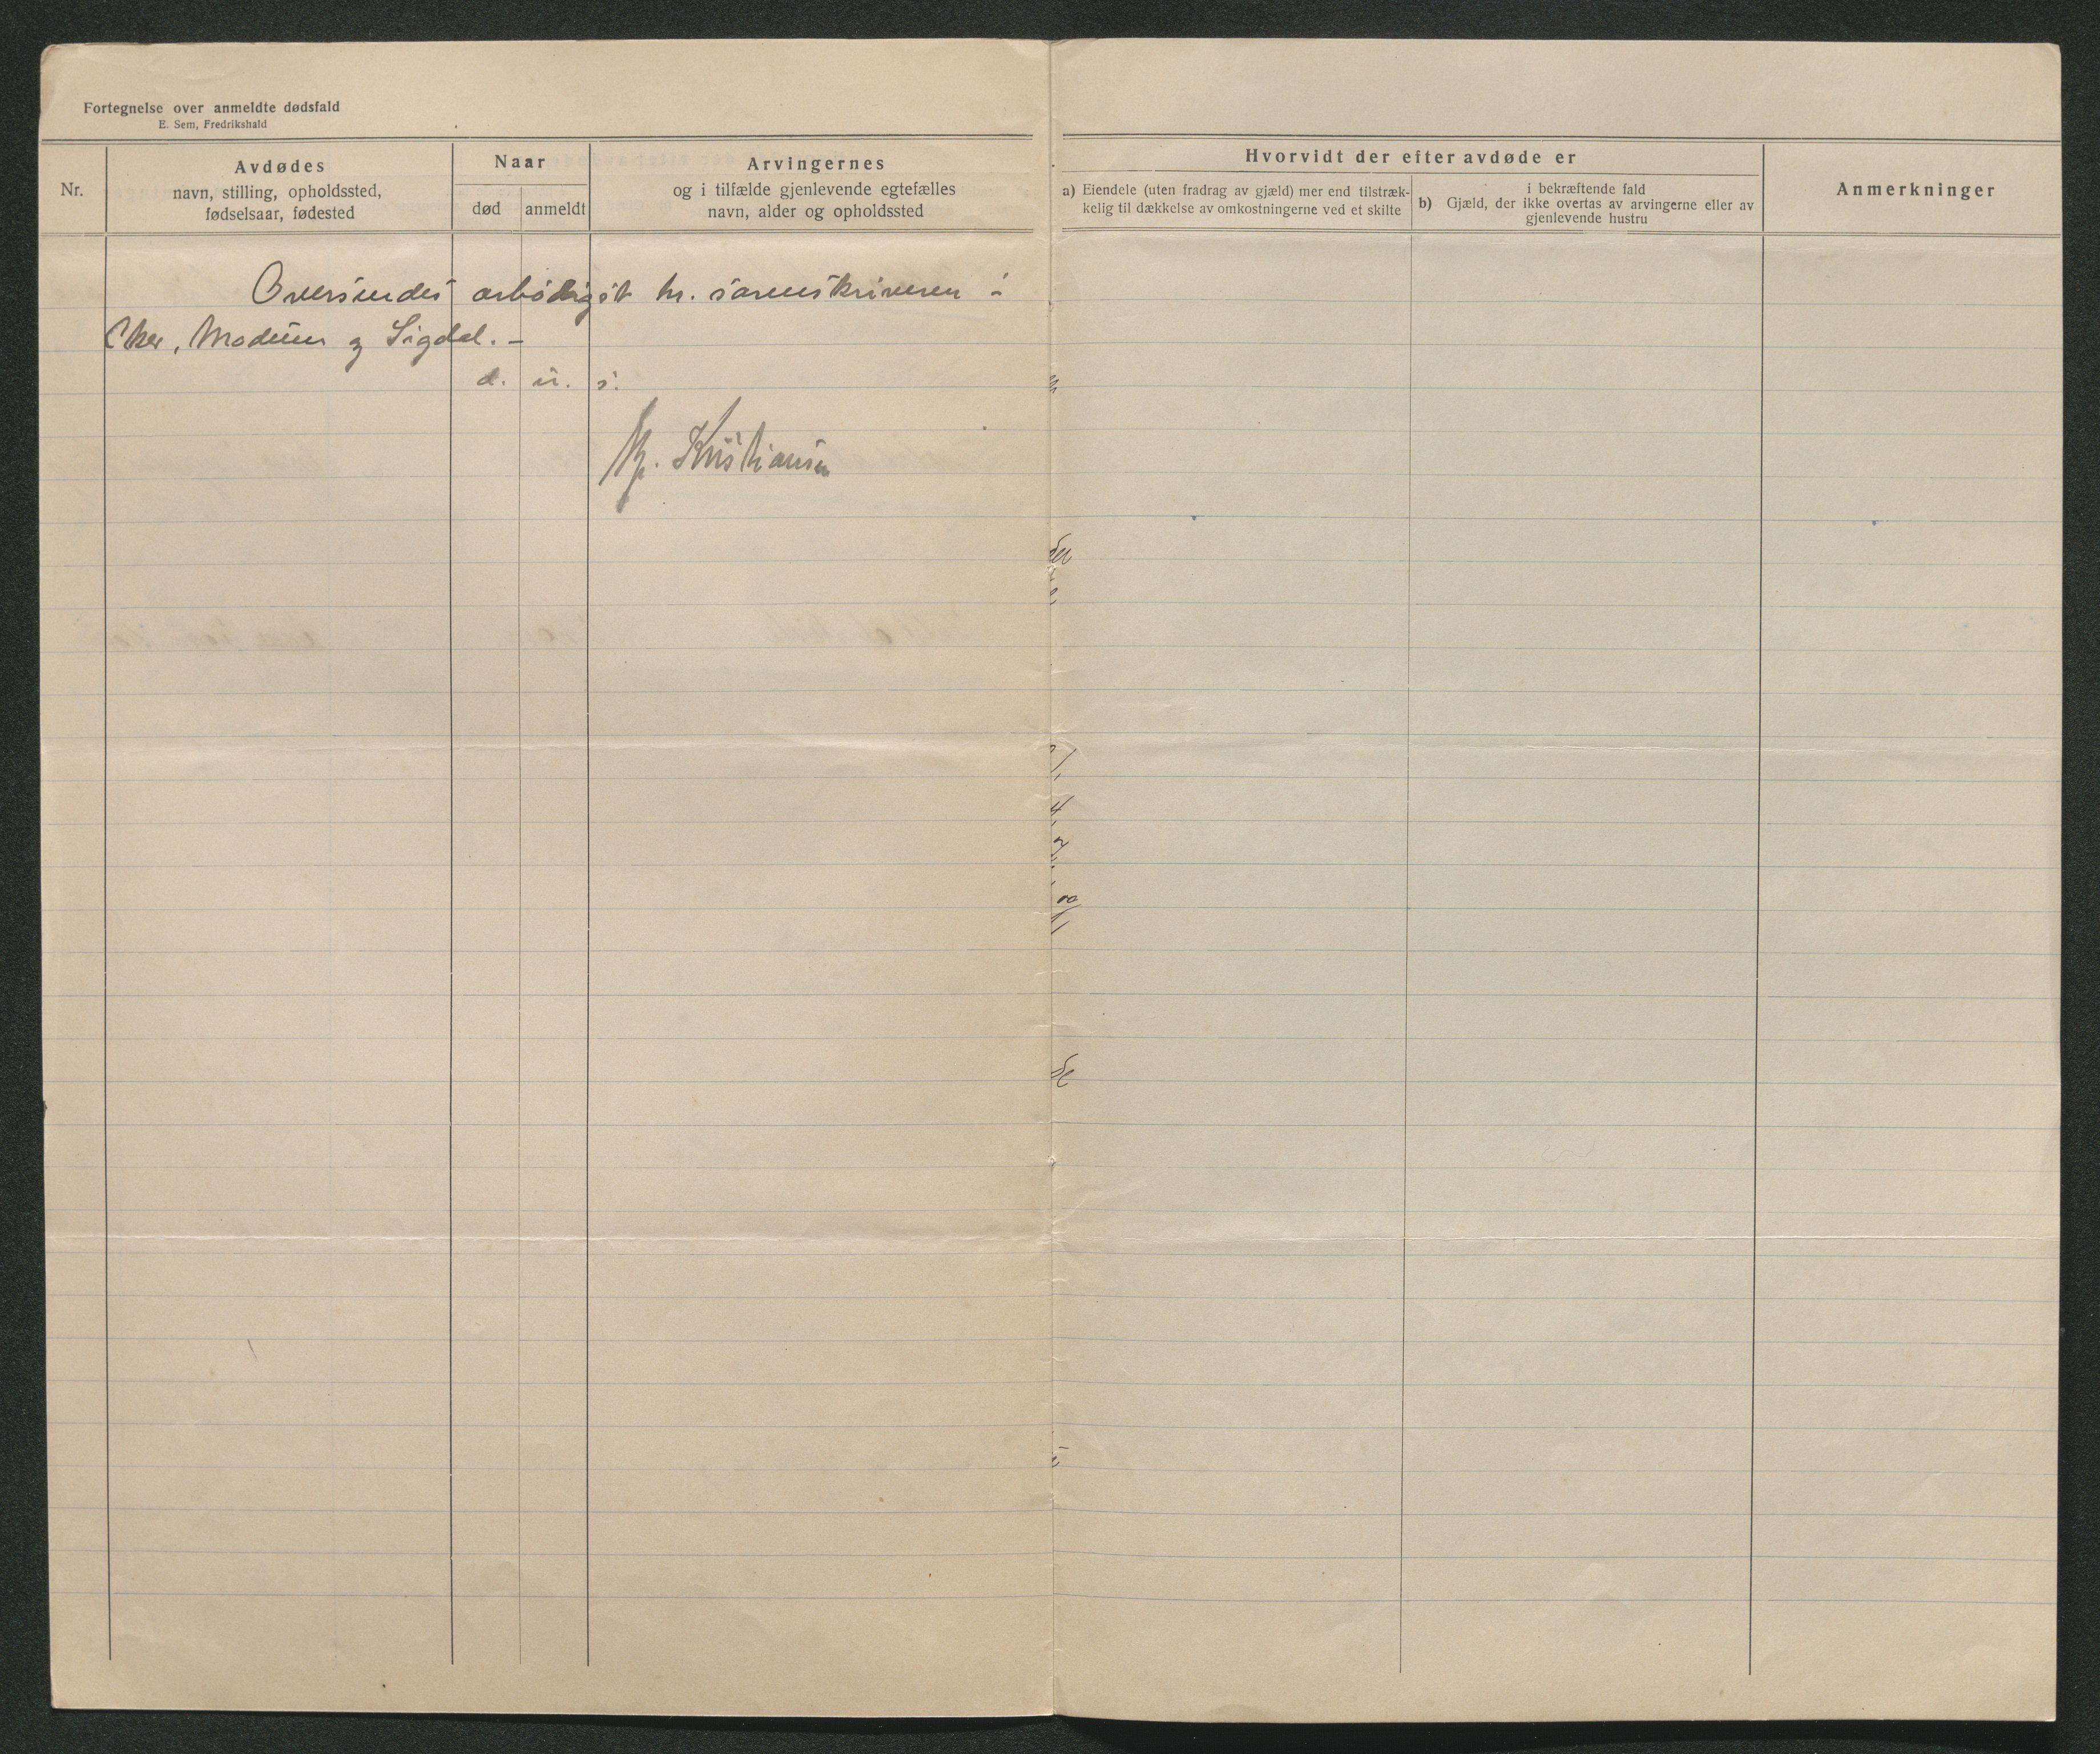 Fortegnelse over anmeldte dødsfald
E. Sem, Fredrikshald
Nr.
Avdødes
navn, stilling, opholdssted,
fødselsaar, fødested
Naar
død
anmeldt
Arvingernes
og i tilfælde gjenlevende egtefælles
navn, alder og opholdssted
Hvorvidt der efter avdøde er
a) Eiendele (uten fradrag av gjæld) mer end tilstræk-
kelig til dækkelse av omkostningerne ved et skilte
i bekræftende fald
b) Gjæld, der ikke overtas av arvingerne eller av
gjenlevende hustru
Anmerkninger
Oversendes ærbødigst hr. sorenskriveren i
Eker, Modum og Sigdal. –
d. u. s.
Kristiansen